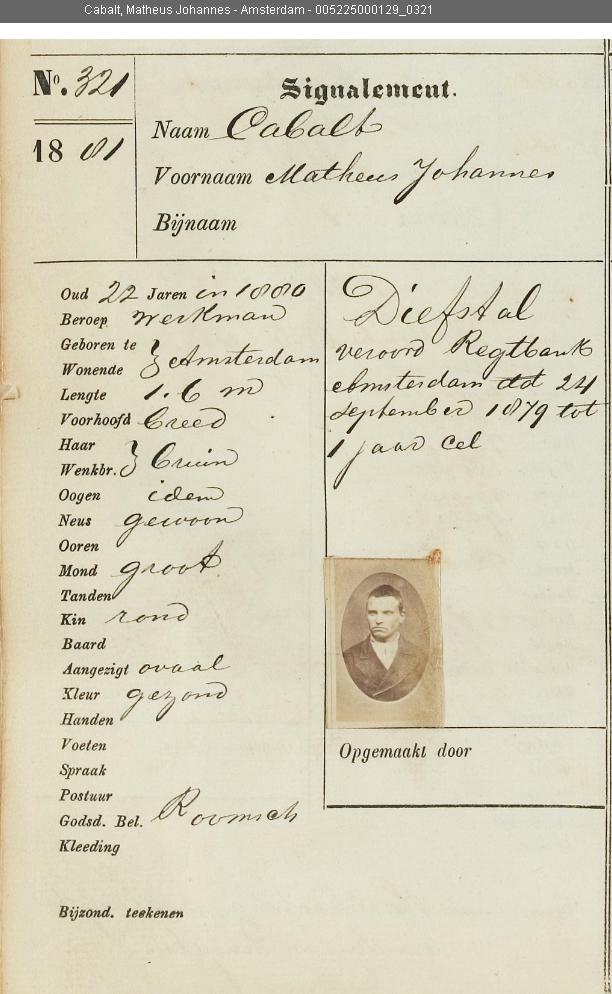 Cabalt, Matheus Johannes - Amsterdam - 005225000129_0321
No. 321
Signalement.
1881
Naam Cabalt
Voornaam Matheus Johannes
Bijnaam
Oud 22 Jaren in 1880
Beroep werkman
Geboren te
Wonende } Amsterdam
Lengte 1.6 m
Voorhoofd breed
Haar
Wenkbr. } bruin
Oogen idem
Neus gewoon
Ooren
Mond groot
Tanden
Kin rond
Baard
Aangezigt ovaal
Kleur gezond
Handen
Voeten
Spraak
Postuur
Godsd. Bel. Roomsch
Kleeding
Bijzond. teekenen
Diefstal
veroord Regtbank
Amsterdam dd 24
september 1879 tot
1 jaar cel
Opgemaakt door